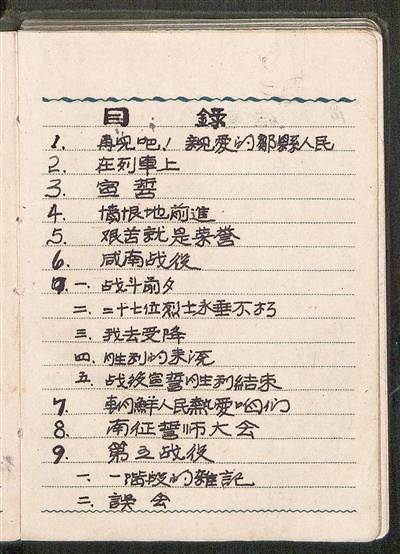 目 錄
1. 再見吧！親愛的鄒縣人民
2. 在列車上
3. 宣誓
4. 憤恨地前進
5. 艰苦就是荣誉
6. 咸南战役
一. 战斗前夕
二. 二十七位烈士永垂不朽
三. 我去受降
四. 胜利的来流
五. 战後宣誓胜利結束
7. 朝鮮人民熱愛咱们
8. 南征誓师大会
9. 第五战役
一. 一階段的雜記
二. 誤会